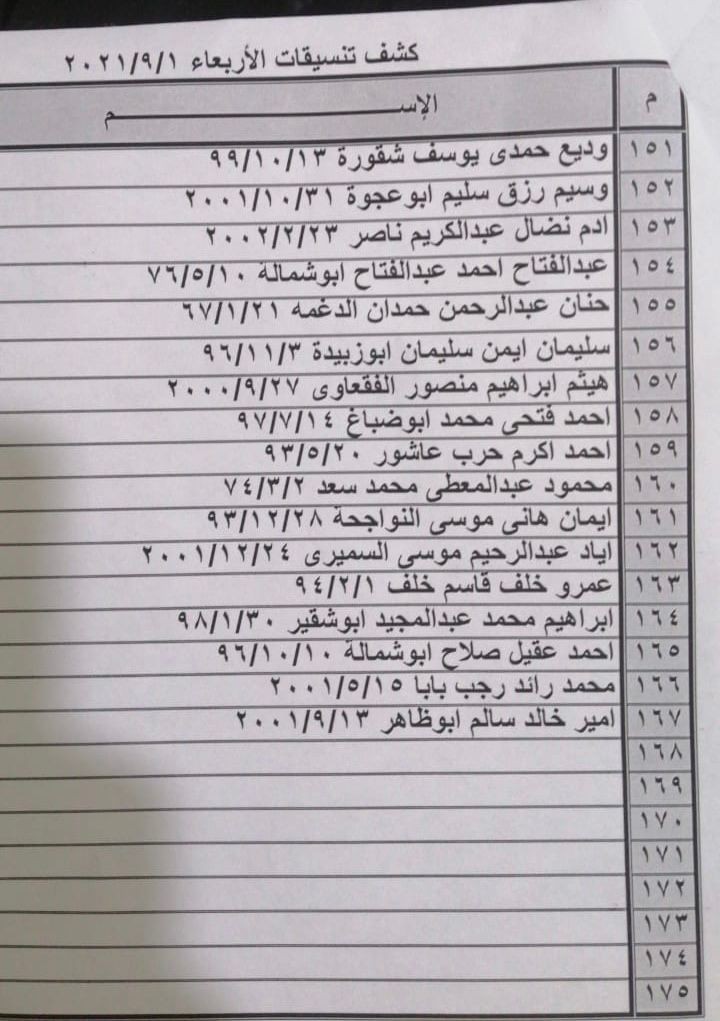 كشف تنسيقات الأربعاء ٢٠٢١/٩/١
م الإســـــــــــــــــم
١٥١ وديع حمدى يوسف شقورة ٩٩/١٠/١٣
١٥٢ وسيم رزق سليم ابوعجوة ٢٠٠١/١٠/٣١
١٥٣ ادم نضال عبدالكريم ناصر ٢٠٠٢/٢/٢٣
١٥٤ عبدالفتاح احمد عبدالفتاح ابوشمالة ٧٦/٥/١٠
١٥٥ حنان عبدالرحمن حمدان الدغمه ٦٧/١/٢١
١٥٦ سليمان ايمن سليمان ابوزبيدة ٩٦/١١/٣
١٥٧ هيثم ابراهيم منصور الفقعاوى ٢٠٠٠/٩/٢٧
١٥٨ احمد فتحى محمد ابوضباغ ٩٧/٧/١٤
١٥٩ احمد اكرم حرب عاشور ٩٣/٥/٢٠
١٦٠ محمود عبدالمعطى محمد سعد ٧٤/٣/٢
١٦١ ايمان هانى موسى النواجحة ٩٣/١٢/٢٨
١٦٢ اياد عبدالرحيم موسى السميرى ٢٠٠١/١٢/٢٤
١٦٣ عمرو خلف قاسم خلف ٩٤/٢/١
١٦٤ ابراهيم محمد عبدالمجيد ابوشقير ٩٨/١/٣٠
١٦٥ احمد عقيل صلاح ابوشمالة ٩٦/١٠/١٠
١٦٦ محمد رائد رجب بابا ٢٠٠١/٥/١٥
١٦٧ امير خالد سالم ابوظاهر ٢٠٠١/٩/١٣
١٦٨
١٦٩
١٧٠
١٧١
١٧٢
١٧٣
١٧٤
١٧٥